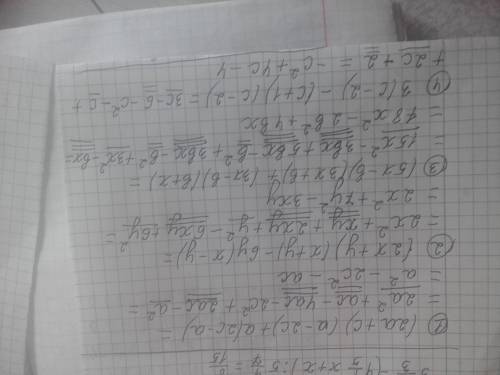 ① (2a+c)(a-2c)+a(2c-a)=
= 2a²+ac-4ac-2c²+2ac-a²=
= a²-2c²-ac
② (2x+y)(x+y)-6y(x-y)=
= 2x²+xy+2xy+y²-6xy+6y²=
= 2x²+7y²-3xy
③ (5x-b)(3x+b)+(3x-b)(b+x)=
= 15x²-3bx+5bx-b²+3bx-b²+3x²-bx=
= 18x²-2b²+4bx
④ 3(c-2)-(c+1)(c-2)=3c-6-c²-c+
+2c+2=-c²+4c-4